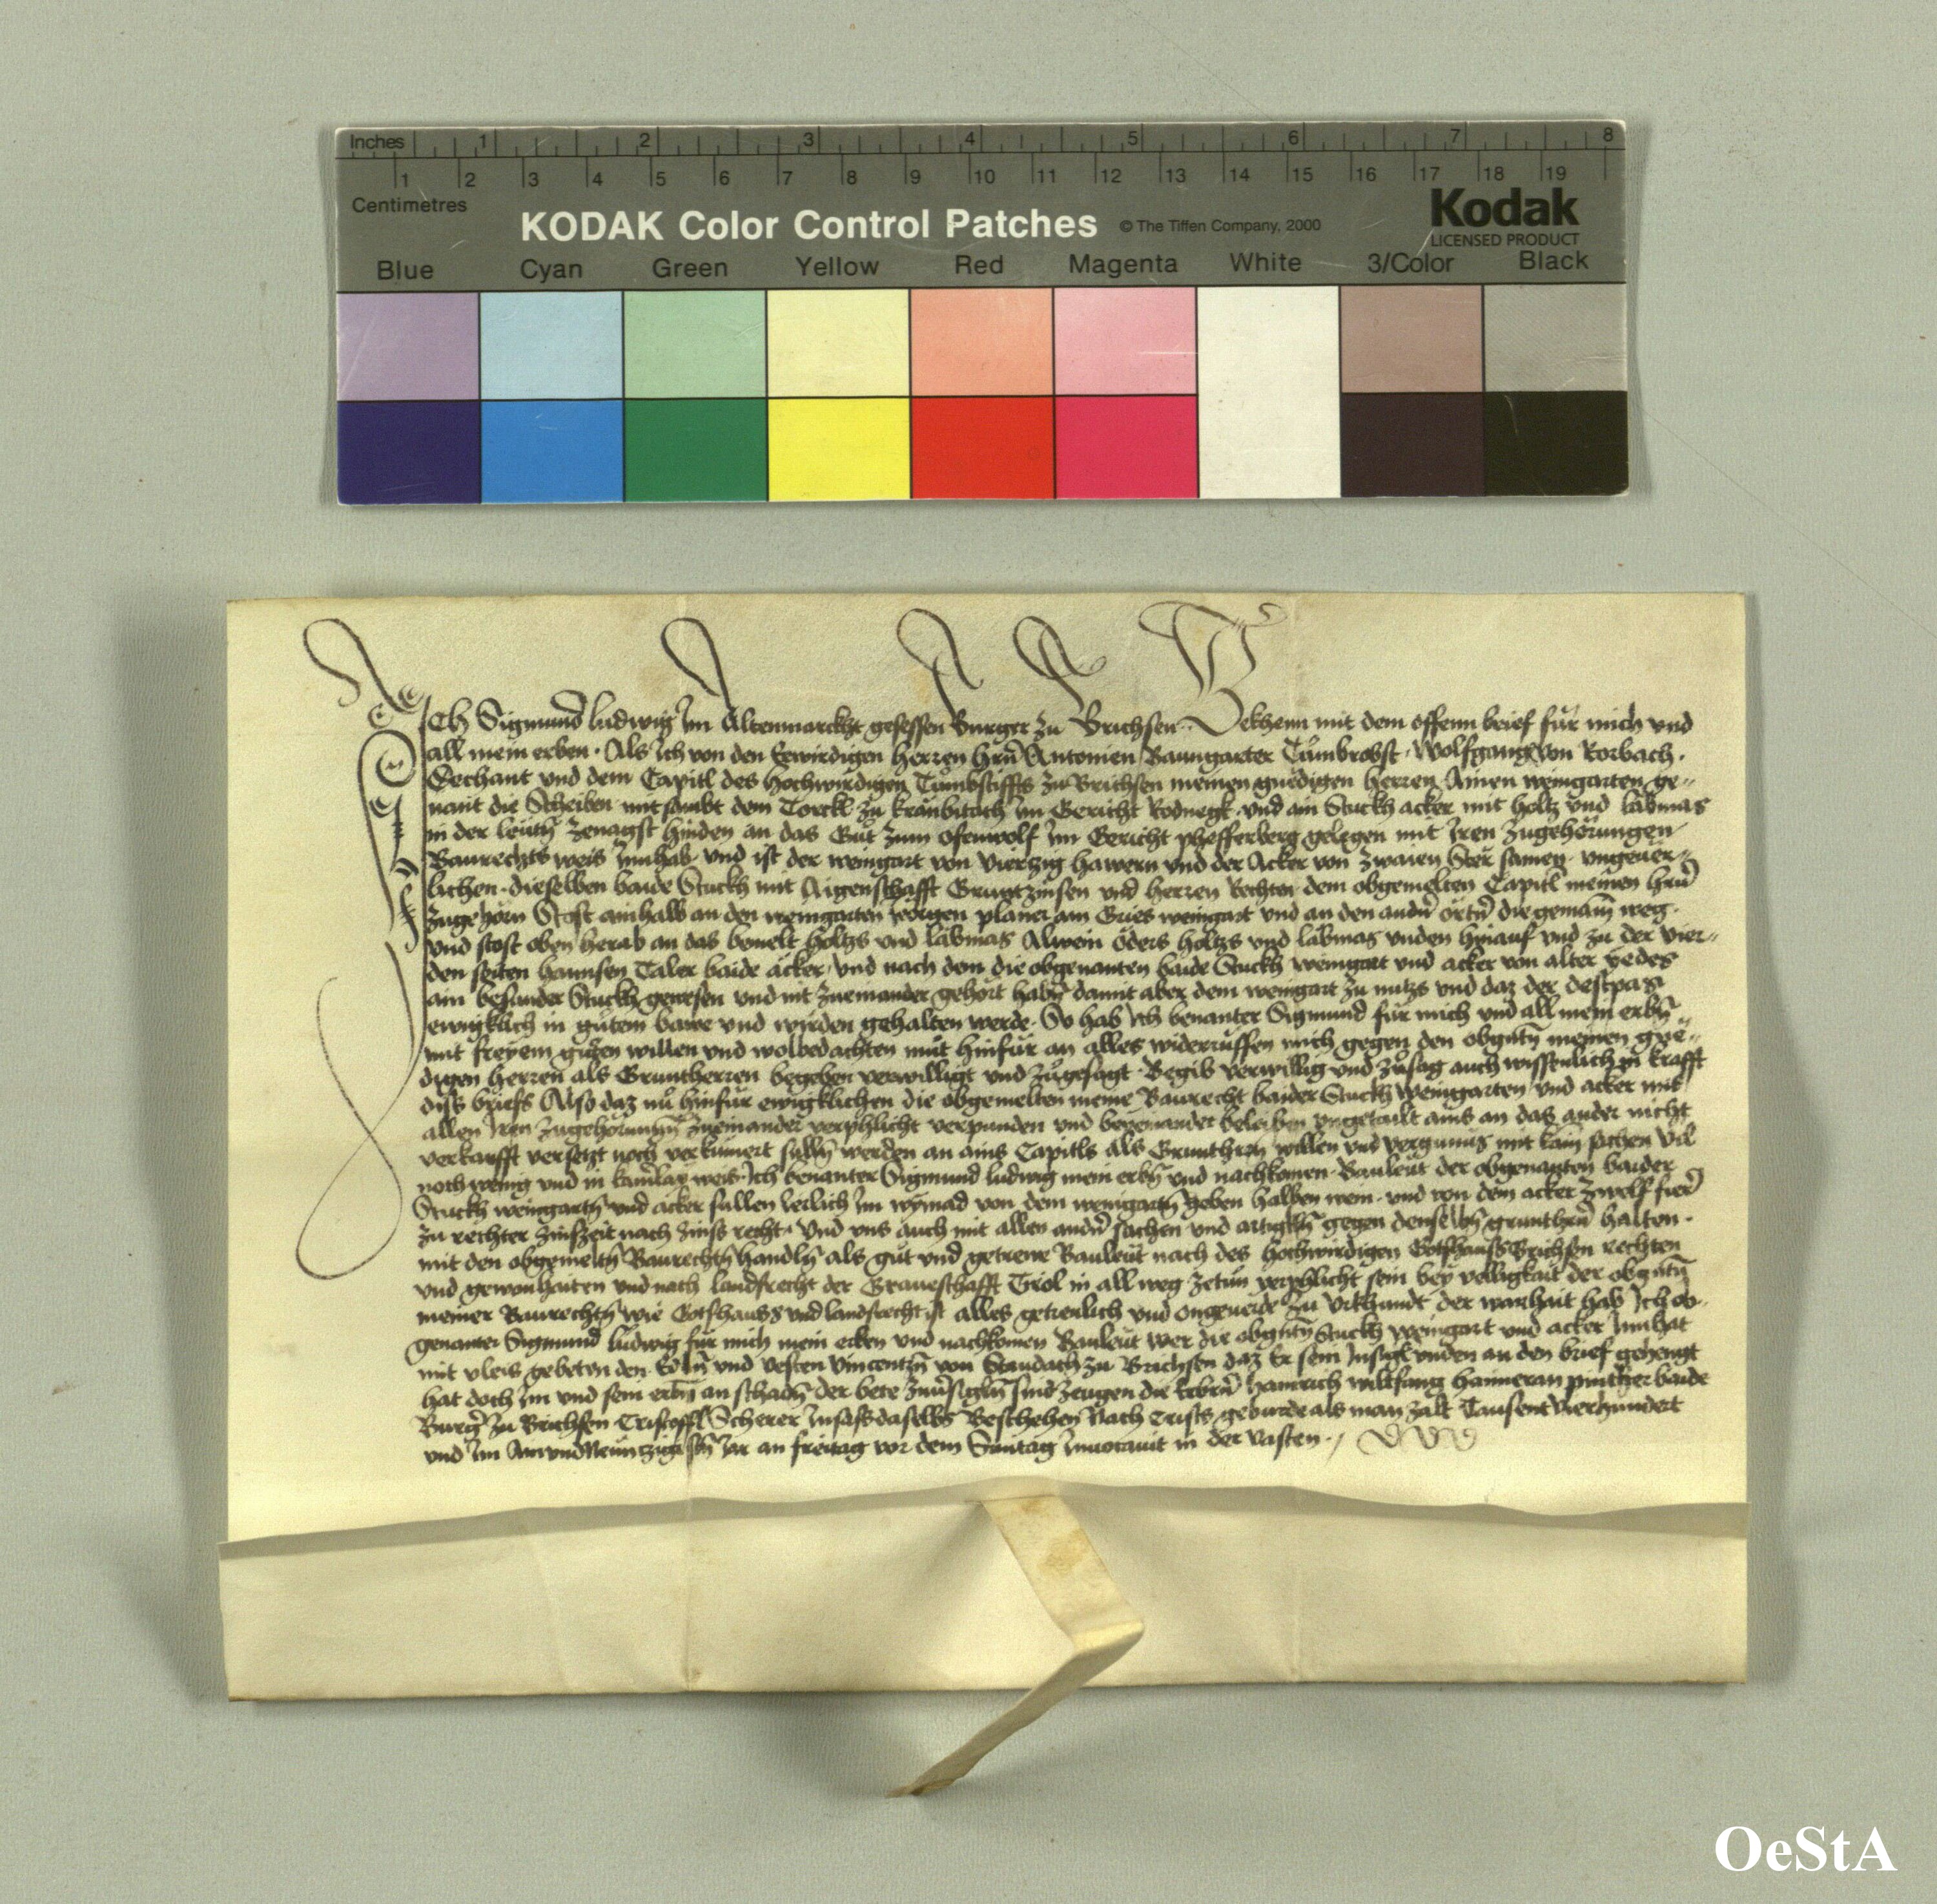 Inches 1 2 3 4 5 6 7 8
1 2 3 4 5 6 7 8 9 10 11 12 13 14 15 16 17 18 19
Centimetres
KODAK Color Control Patches © The Tiffen Company, 2000 Kodak
LICENSED PRODUCT
Blue Cyan Green Yellow Red Magenta White 3/Color Black
Ich Sigmund ludwig Im Altenmarckht gesessen Burger zu Brichsen Bekhenn mit dem offenn brief für mich vnd
all mein erben. Als ich von den Eerwirdigen herren hrn Anthonien Baumgarter Tumbrobst. Wolfgang von Rorbach.
Dechant vnd dem Capitl des hochwirdigen Tumbstiffts zu Brichsen meinen gnedigen herren Ainen weingarten ge-
nant die Scheiben mitsambt dem Torckl zu kranbitach Im Gericht Rodnegk. vnd ain Stuckh acker mit holtz vnd labmas
in der leuttn zenagst hinden an das Gut zum ofenwolf Im Gericht pheffersberg gelegen mit Iren zugehörungen
Baurechts weis Innhab. vnd ist der weingart von vierzig hawern vnd der Acker von zwaien Ster samen. vngeuer-
lichen. dieselben baide Stuckh mit Aigenschafft Gruntzinsen vnd herren Rechten dem obgemelten Capitl meinen hrn
zugehörn Stost ainhalb an den weingarten planer am Gries weingart vnd an den andn örtn die gemain weg.
vnd stost oben herab an das holtzs vnd labmas Alwein öders holtzs vnd labmas vnden hinauf vnd zu der vier-
den seiten hannsen Taler baide äcker. vnd nach dem die obgenanten baide Stuckh weingart vnd acker von alter yedes
ain besunder Stuckh gewesen vnd nit zueinander gehört habn damit aber dem weingart zu nutzs vnd daz der destpas
ewigklich in gutem bawe vnd wirden gehalten werde. So hab Ich benanter Sigmund für mich vnd all mein erbn
mit freyem guten willen vnd wolbedachten mut hinfür an alles widerrüffen mich gegen den obgntn meinen gne-
digen herren als Gruntherren begeben verwilligt vnd zugesagt. Begib verwillig vnd zusag auch wissenlich in krafft
diss briefs Also daz nu hinfür ewigklichen die obgemelten meine Baurecht baider Stuckh Weingarten vnd acker mit
allen Iren zugehörungn zueinander verphlicht verpunden vnd beyeinander beleiben vngetailt ains an das ander nicht
verkaufft versetzt noch verkümert sulln werden an ains Capitls als Grunthrn willen vnd vergunnus mit kain sachen vil
noch wenig vnd in kainerlay weis. Ich benanter Sigmund ludwig mein erbn vnd nachkomen. Bauleut der obgenanten baider
Stuckh weingartn vnd acker sullen Ierlich Im wymad von dem weingartn geben halben wein. vnd von dem acker zwelf
zu rechter zinszeit nach zinss recht. Vnd vns auch mit allen andn sachen vnd gegen denselbn grunthrn halten.
mit den obgemeltn Baurechtn handln als gut vnd getrewe Bauleut nach des hochwirdigen Gotshauss Brichsen rechten
vnd gewonhaiten vnd nach landsrecht der Graueschafft Tirol in all weg zetun verphlicht sein bey velligkait der obgntn
meiner Baurechtn wie Gotshauss vnd landsrecht ist alles getreulich vnd ongeuerde Zu Vrkhundt der warhait hab Ich ob-
genanter Sigmund ludwig für mich mein erben vnd nachkomen Bauleut wer die obgntn Stuckh weingart vnd acker Innhat
mit vleis gebeten den Edln vnd vesten Vincentzn von Staudach zu Brichsen daz Er sein Insigl vnden an den brief gehengt
hat doch Im vnd sein erbn an schadn der bete sind zeugen die Erbrn hainrich wiltfang haimeran pinther baide
Burgr zu Brichsen Cristoffl Scherer Insass daselbs Beschehen Nach Crists geburde als man zalt Tausent vierhundert
vnd Im Ainvndneuntzigistn Jar an freitag vor dem Suntag Inuocauit in der vasten.
OeStA